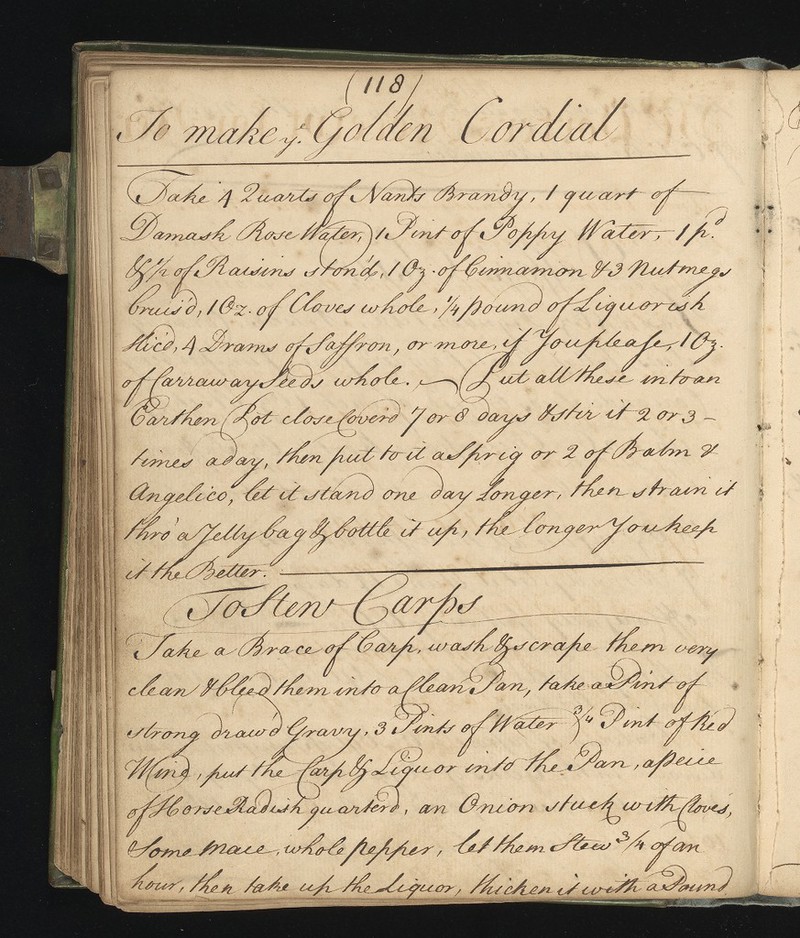 (118)
To make yͤ. Golden Cordial
Take 4 Quarts of Nants Brandy, 1 quart of
Damask Rose Water, 1 Pint of Poppy Water, 1 pᵈ.
& ½ of Raisins ston'd, 1 Oz. of Cinnamon & 3 Nutmegs
bruis'd, 1 Oz. of Cloves whole, ¼ pound of Liquorish
slic'd, 4 Drams of Saffron, or more, if You please, 1 Oz.
of Carraway Seeds whole. — Put all these into an
Earthen Pot close Cover'd 7 or 8 days & stir it 2 or 3 –
times a day, then put to it a Sprig or 2 of Balm &
Angelico, let it stand one day Longer, then strain it
thro' a Jelly bag & bottle it up, the longer You keep
it the Better.
To Stew Carps
Take a Brace of Carp, wash & scrape them very
clean & bleed them into a Clean Pan, take a Pint of
strong draw'd Gravy, 3 Pints of Water ¾ Pint of Red
Wine, put the Carp & Liquor into the Pan, a Peice
of Horse Radish quarter'd, an Onion stuck with Cloves,
Some Mace, whole Pepper, let them Stew ¾ of an
hour, then take up the Liquor, thicken it with a Pound